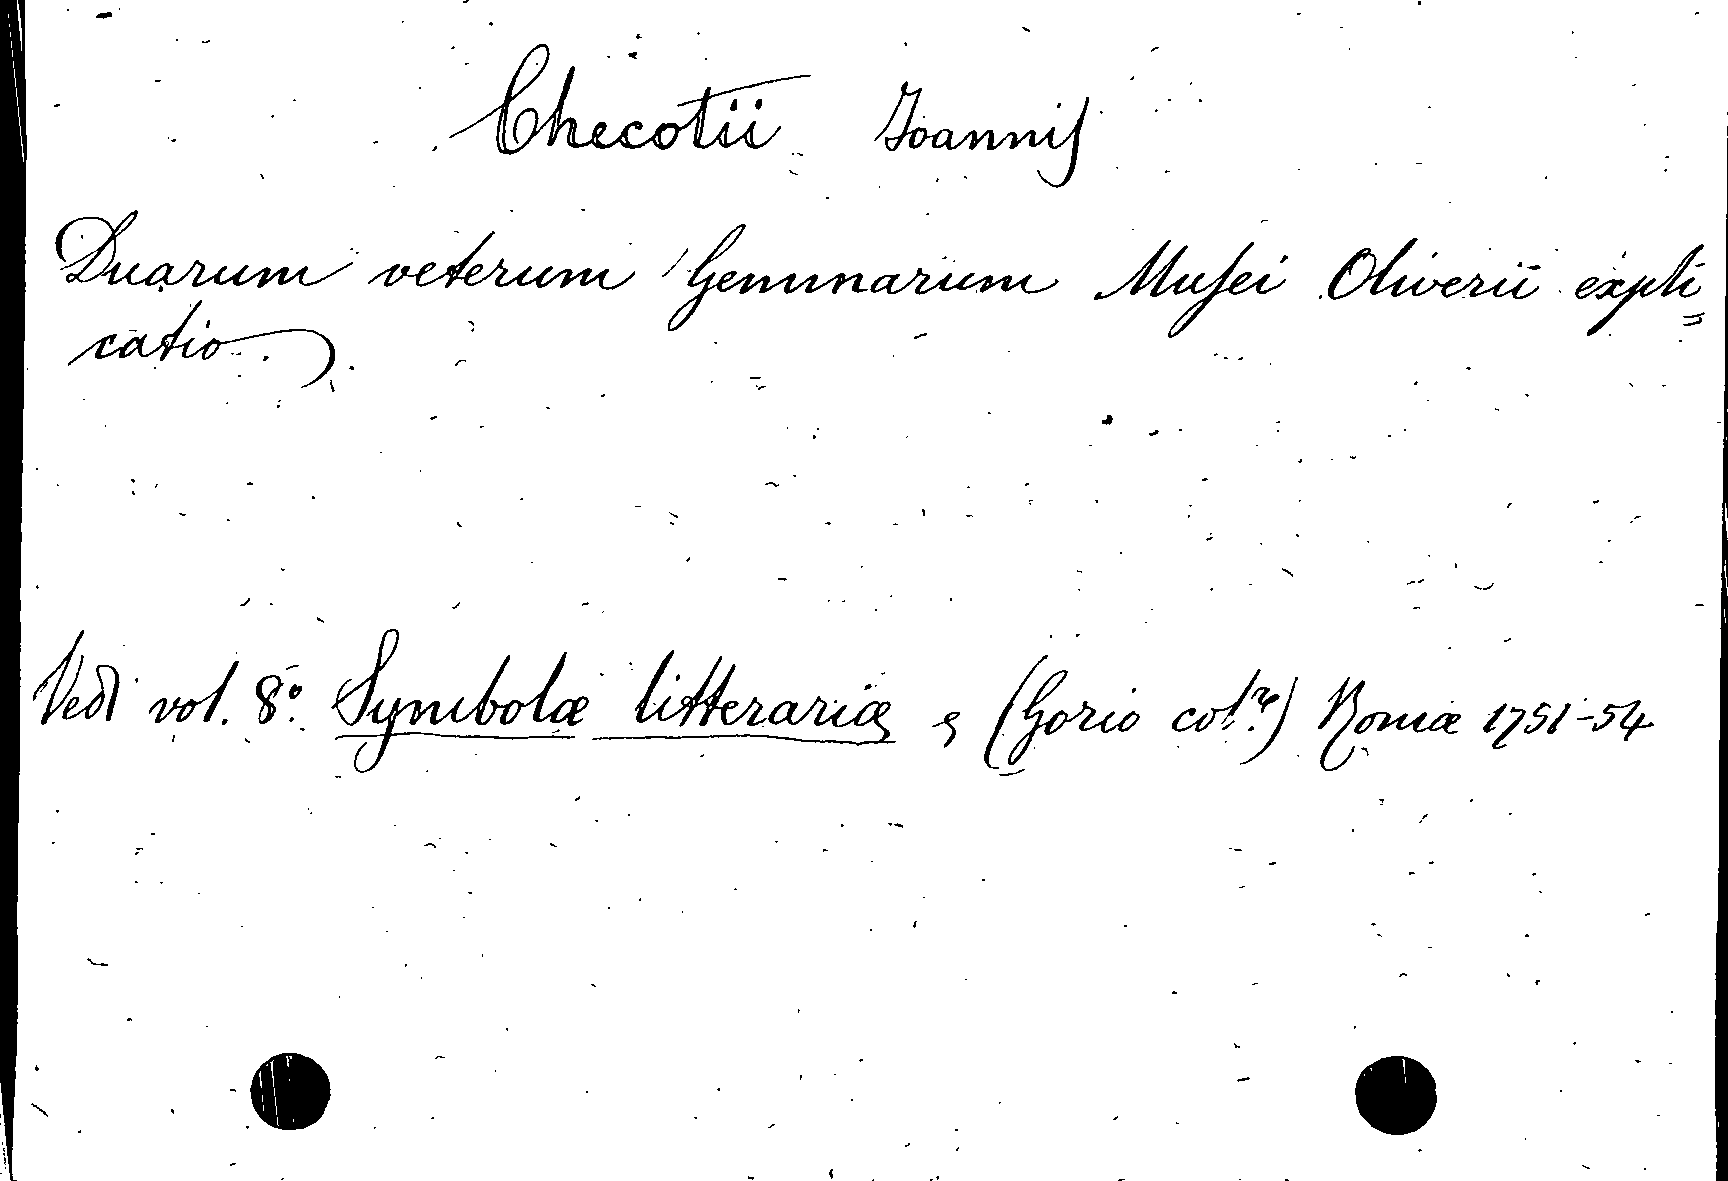 Checotii Joannis
Duarum veterum Gemmarum Musei Oliverii expli=
catio.
Vedi vol. 8.º Symbolæ litterariæ , (Gorio col.re) Romæ 1751-54